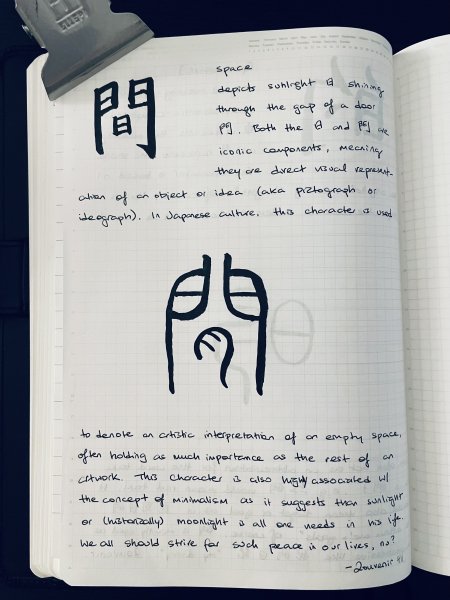 間
space
depicts sunlight 日 shining
through the gap of a door
門. Both the 日 and 門 are
iconic components, meaning
they are direct visual represent-
ation of an object or idea (aka pictograph or
ideograph). In Japanese culture, this character is used
to denote an artistic interpretation of an empty space,
often holding as much importance as the rest of an
artwork. This character is also highly associated w/
the concept of minimalism as it suggests than sunlight
or (historically) moonlight is all one needs in his life.
We all should strive for such peace in our lives, no?